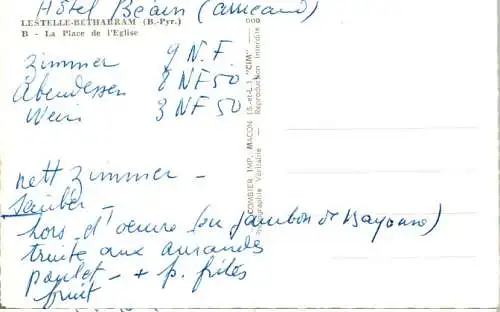 Hôtel Bearn (amicano)
LESTELLE-BETHARRAM (B.-Pyr.)
B - La Place de l'Eglise
Zimmer 9 N.F.
Abendessen 8 NF 50
Wein 3 NF 50
nett Zimmer —
sauber —
hors d'oeuvre (ou jambon de Bayonne)
truite aux amandes
poulet — + p. frites
fruit
COMBIER IMP. MACON (S.-et-L.) "CIM"
Photographie Véritable - Reproduction Interdite
000